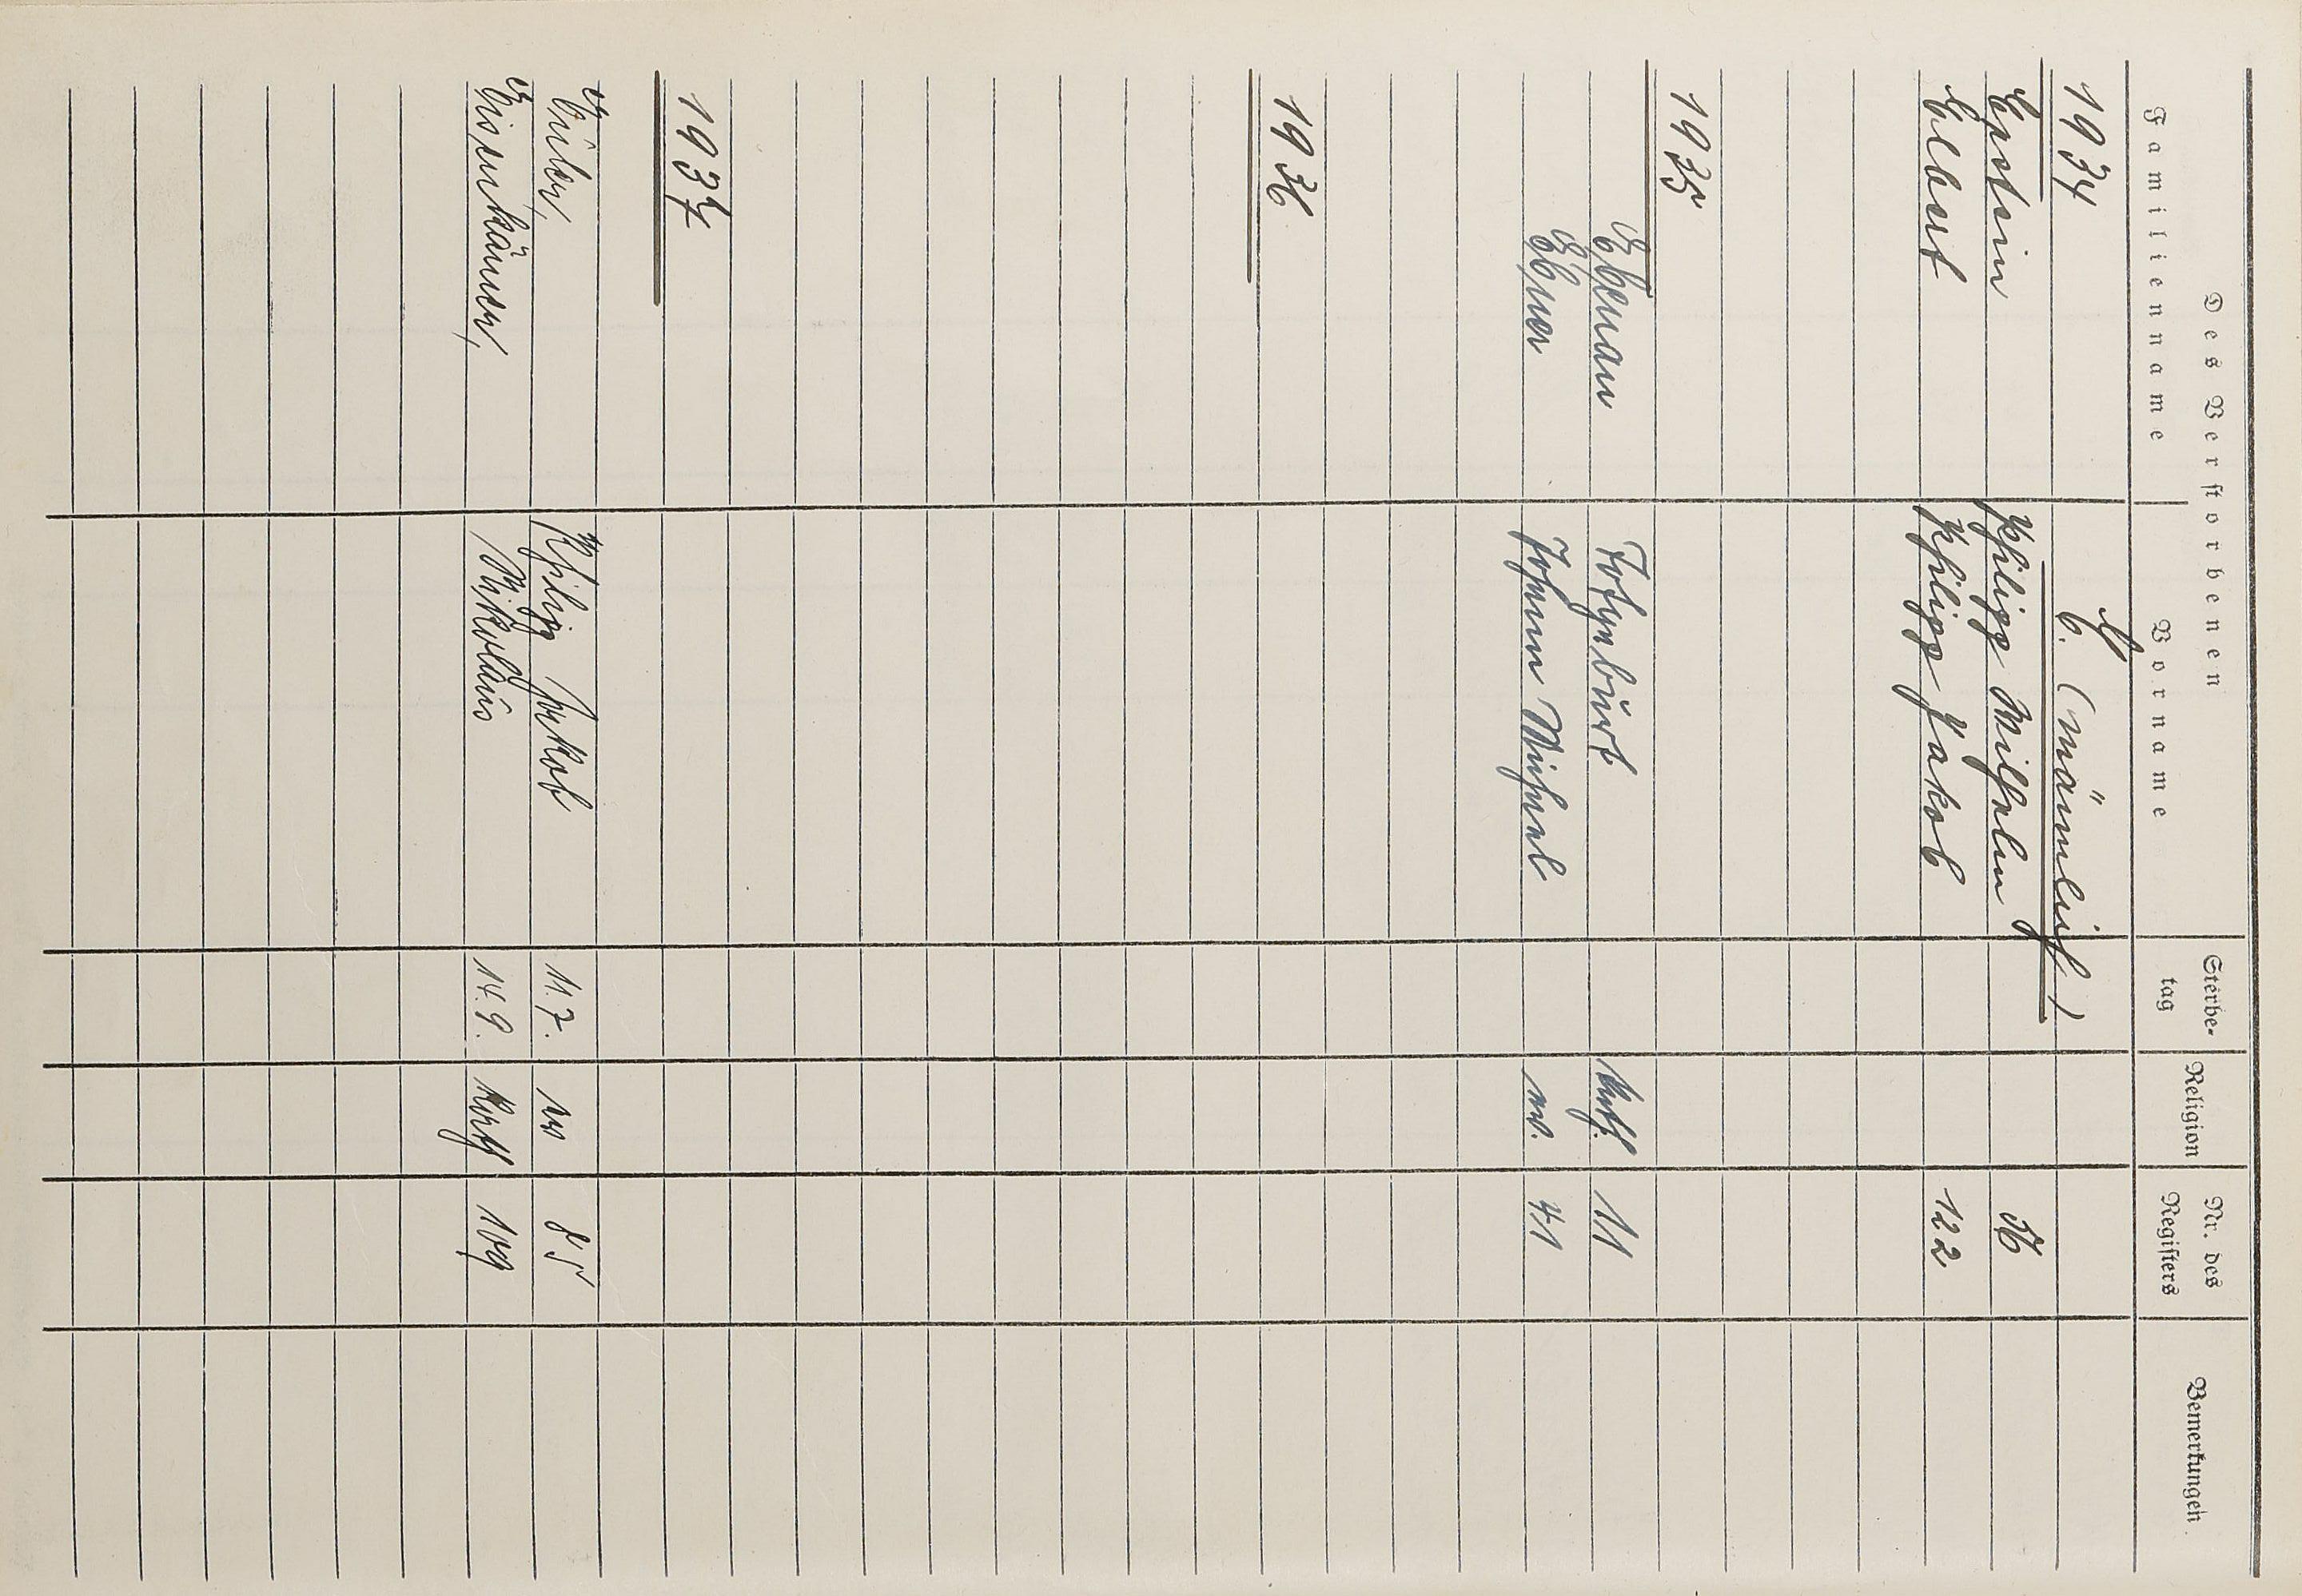 Des Verstorbenen
Familienname Vorname Sterbetag Religion Nr. des Registers Bemerkungen
1934 E. (männlich)
Epstein Philipp Wilhelm 76
Elbert Philipp Jakob 122
1935
Ebenau Totgeburt kath. 11
Ebner Johann Michael ev. 41
1936
1937
Euler, Philipp Jakob 11.7. ev 85
Eisenhäuer, Nikolaus 14.9. kath 109